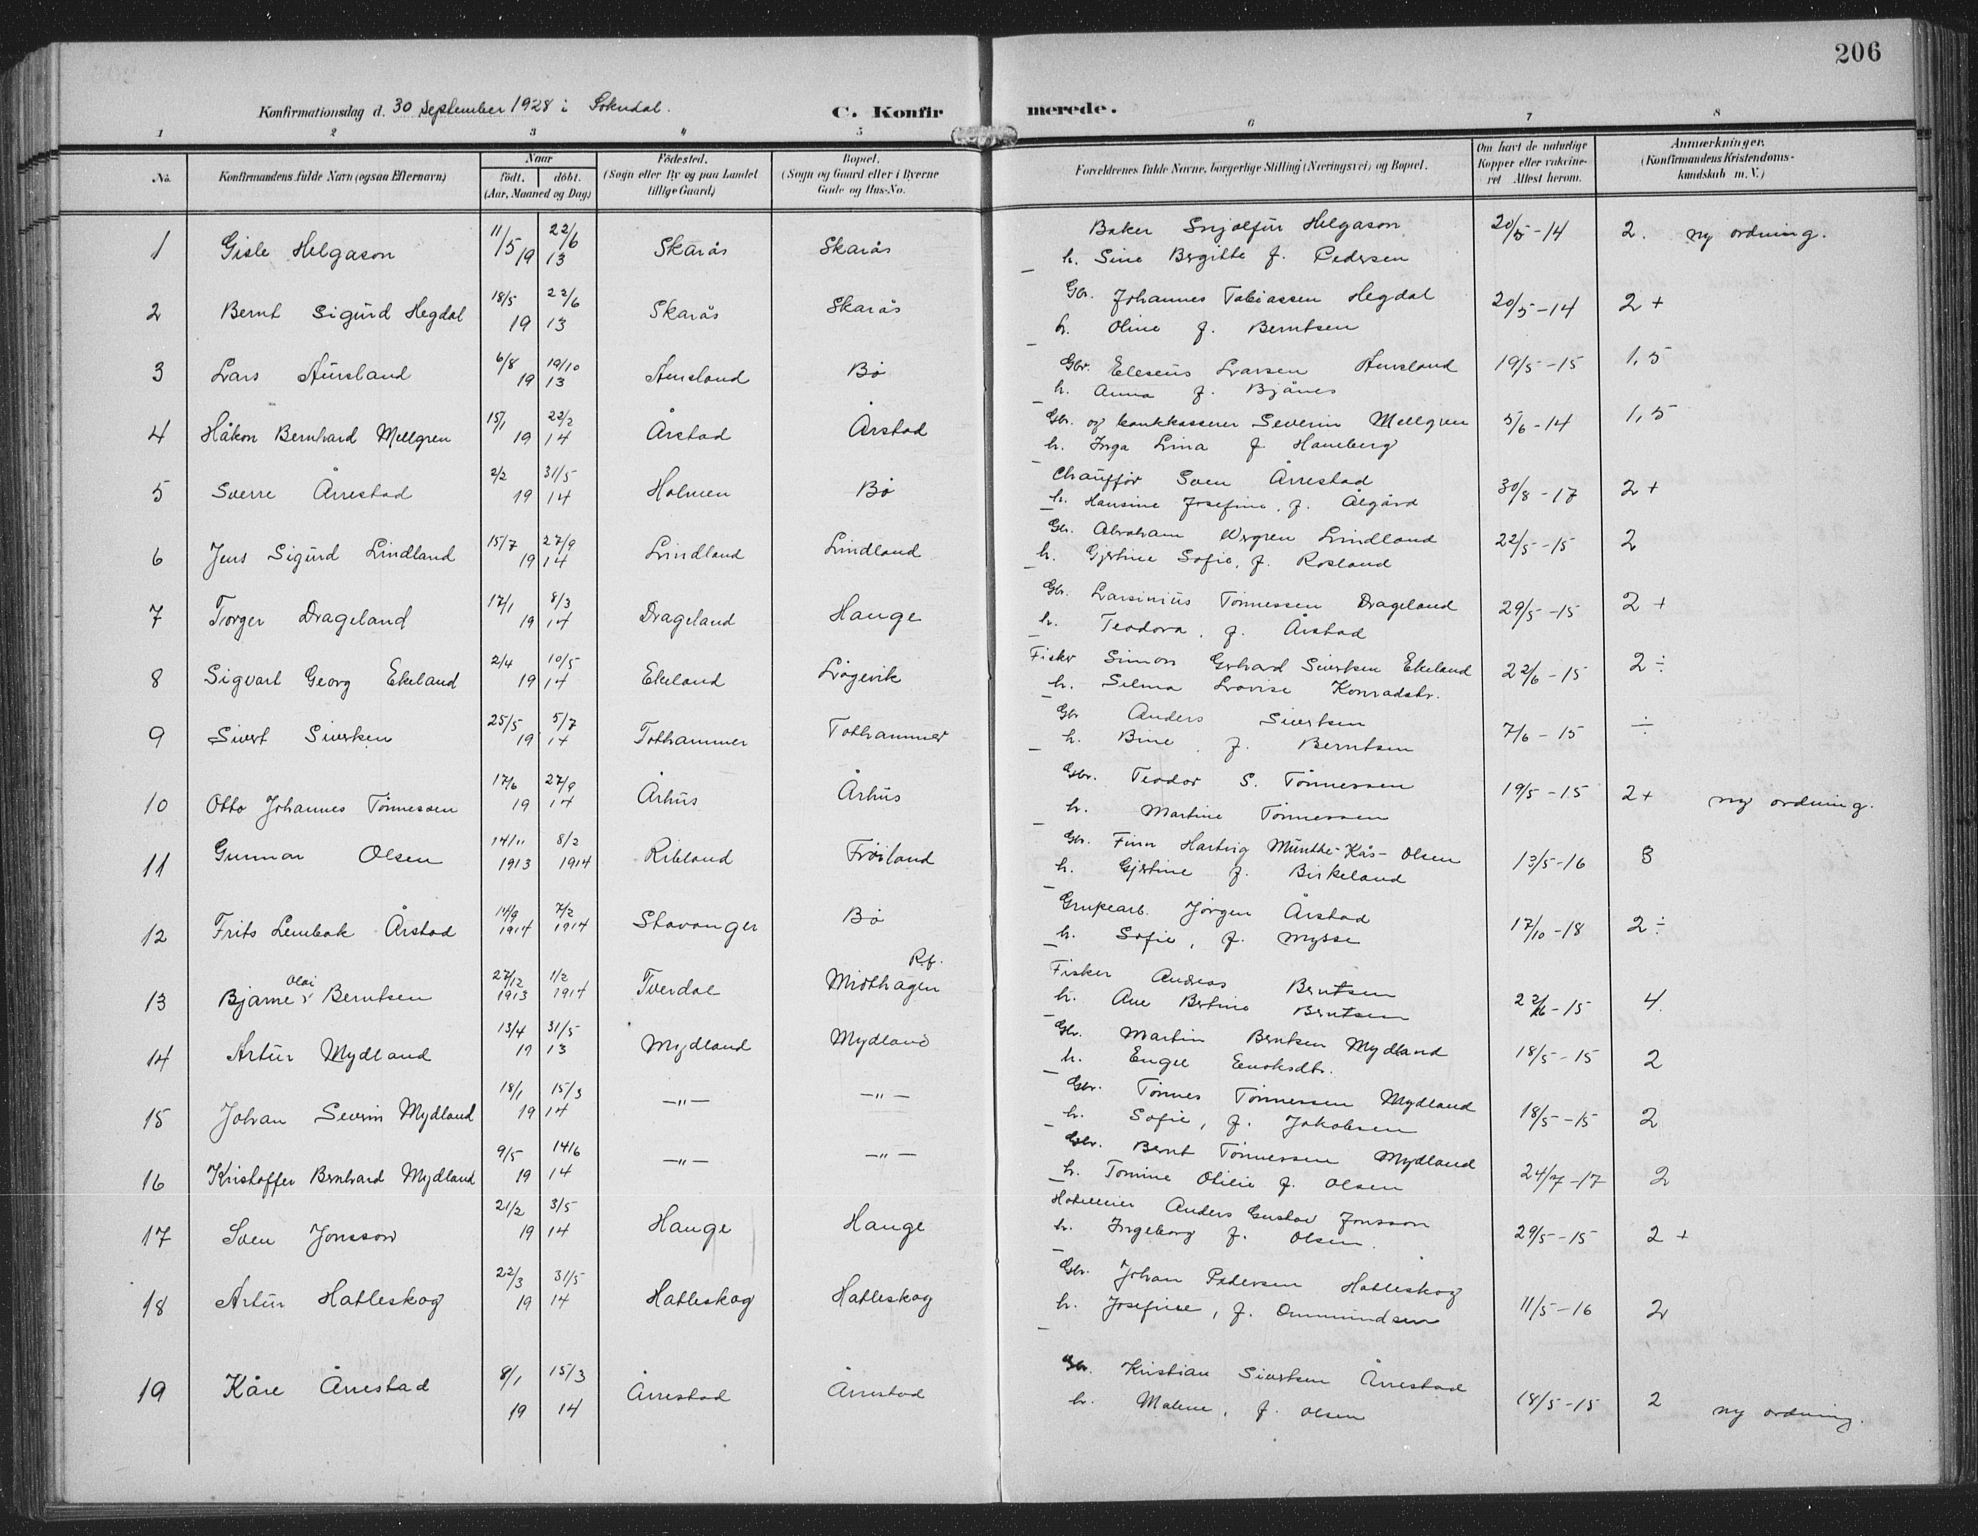 206
Konfirmationsdag d. 30 september 1928 i Sokndal. C. Konfirmerede.
1 2 3 4 5 6 7 8
No. Konfirmandens fulde Navn (ogsaa Efternavn) Naar født. døbt. (Aar, Maaned og Dag) Fødested. (Sogn eller By og paa Landet tillige Gaard) Bopæl. (Sogn og Gaard eller i Byerne Gade og Hus-No. Forældrenes fulde Navne, borgerlige Stilling (Næringsvei) og Bopæl. Om havt de naturlige Kopper eller vaccineret Attest herom. Anmærkninger. (Konfirmandens Kristendomskundskab m. V.)
1 Gisle Helgason 11/5 19 22/6 13 Skarås Skarås Baker Snjolfur Helgason 20/5-14 2. ny ordning.
h. Sine Bergitte f. Pedersen
2 Bernt Sigurd Hegdal 18/5 19 22/6 13 Skarås Skarås Gbr. Johannes Tobiassen Hegdal 20/5-14 2+
h. Oline f. Berntsen
3 Lars Aursland 6/8 19 19/10 13 Aursland Bø Gbr. Eleseus Larsen Aursland 19/5-15 1,5
h. Anna f. Bjånes
4 Håkon Bernhard Mellgren 15/1 19 22/2 14 Årstad Årstad Gbr. og bankkasserer Severin Mellgren 5/6-14 1,5
h. Inga Lina f Haneberg
5 Sverre Årrestad 2/2 19 31/5 14 Holmen Bø Chauffør Sven Årrestad 30/8-17 2+
h. Hansine Josefine, f. Ålgård
6 Jens Sigurd Lindland 15/7 19 27/9 14 Lindland Lindland Gbr. Abraham Lindland 22/5-15 2
h. Gjertine Sofie, f. Rosland
7 Torger Drageland 17/1 19 8/3 14 Drageland Hauge Gbr. Larsinius Tønnessen Drageland 29/5-15 2+
h. Teodora, f. Årstad
8 Sigvart Georg Ekeland 2/4 19 10/5 14 Ekeland Løgevik Fisker Simon Gerhard Sivertsen Ekeland 22/6-15 2÷
h. Selma Lovise Konradsdtr.
9 Sivert Sivertsen 25/5 19 5/7 14 Tothammer Tothammer Gbr Anders Sivertsen 7/6-15 ÷
h. Bine, f. Berntsen
10 Otto Johannes Tønnessen 17/6 19 27/9 14 Århus Århus Gbr. Teodor S. Tønnessen 19/5-15 2+ ny ordning.
h. Martine Tønnessen
11 Gunnar Olsen 14/11 1913 8/2 1914 Ribland Frøiland Gbr. Finn Hartvig Munthe-Kås-Olsen 13/5-16 3
h. Gjertine f. Birkeland
12 Frits Lembak Årstad 14/9 1914 7/2 1914 Stavanger Bø Grubearb. Jørgen Årstad 17/10-18 2÷
h. Sofie, f. Mysse
13 Bjarne Olai Berntsen 27/12 1913 1/2 1914 Tverdal Rf. Midthagen Fisker Andreas Berntsen 22/6-15 4.
h. Ane Bertine Berntsen
14 Artur Mydland 13/4 19 31/5 13 Mydland Mydland Gbr. Martin Berntsen Mydland 18/5-15 2
h. Engel Enoksdtr.
15 Johan Severin Mydland 18/1 19 15/3 14 —"— —"— Gbr. Tønnes Tønnessen Mydland 18/5-15 2
h. Sofie, f. Jakobsen
16 Kristoffer Bernhard Mydland 9/5 19 14/6 14 —"— —"— Gbr. Bernt Tønnessen Mydland 24/7-17 2
h. Tomine Otilie f. Olsen
17 Sven Jonsson 21/2 19 3/5 14 Hauge Hauge Hotelleier Anders Gustav Jonsson 29/5-15 2+
h. Ingeborg f. Olsen.
18 Artur Hatleskog 22/3 19 31/5 14 Hatleskog Hatleskog Gbr. Johan Pedersen Hatleskog 11/5-16 2
h. Josefine, f. Ommundsen
19 Kåre Årrestad 8/1 19 15/3 14 Årrestad Årrestad Gbr. Kristian Sivertsen Årrestad 18/5-15 2 ny ordning.
h. Malene, f. Olsen